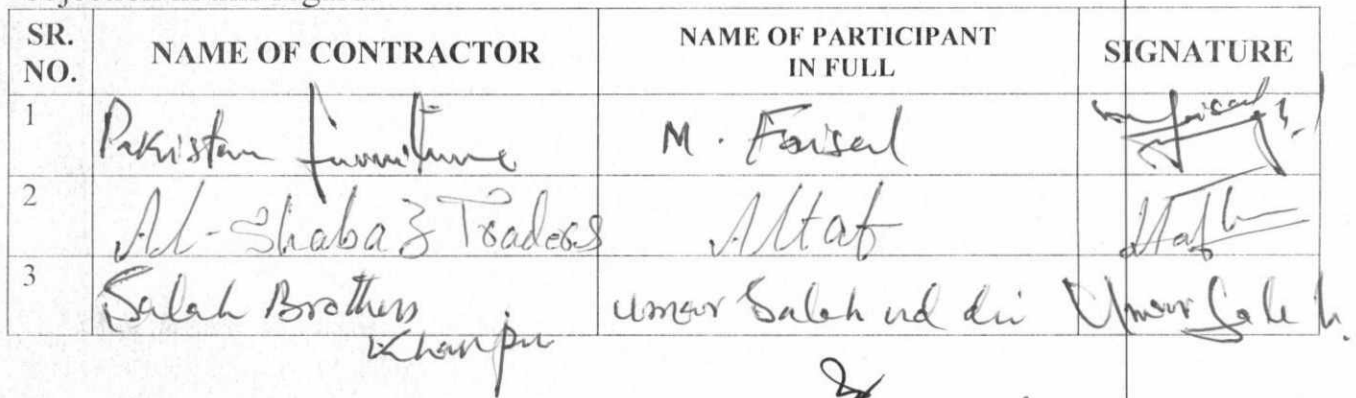 SR. NO. NAME OF CONTRACTOR NAME OF PARTICIPANT IN FULL SIGNATURE
1 Pakistan furniture M. Faisal
2 Al-Shabaz Traders Altaf Altaf
3 Salah Brothers Khanpur Umar Salah ud din Umar Saleh.